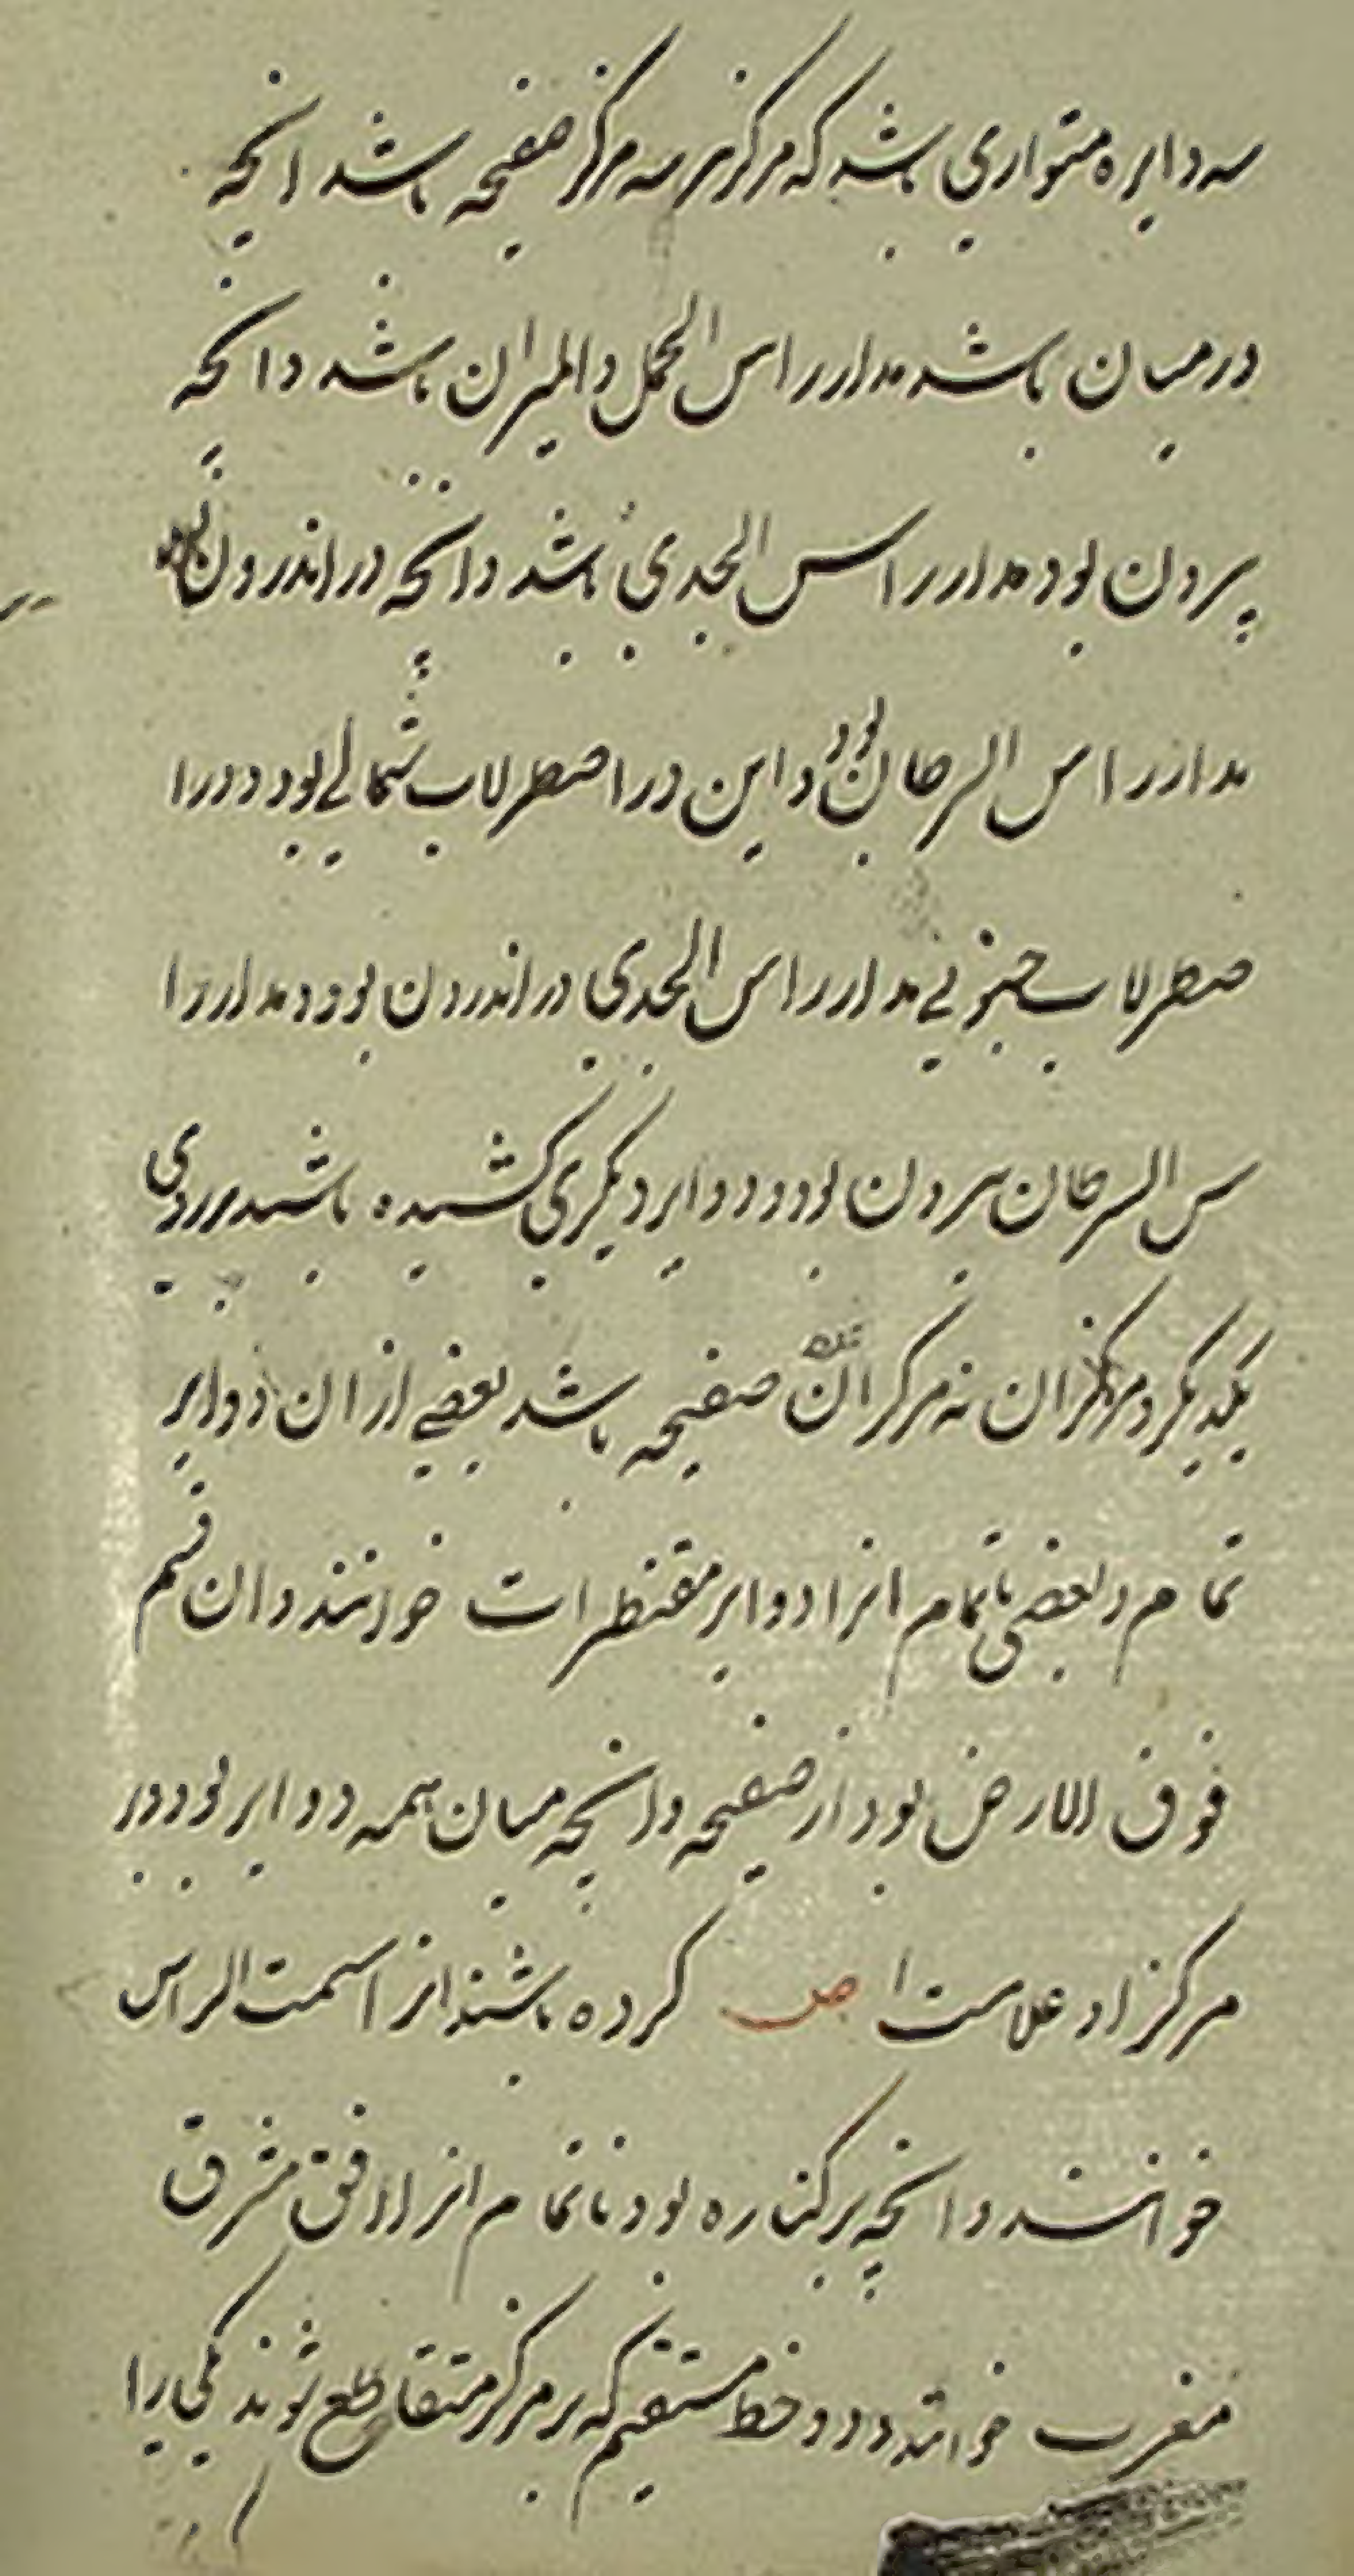 سه دایره متوازی باشد که مرکز هر سه مرکز صفیحه باشد انچه
در میان باشد مدار راس الحمل و المیزان باشد و انچه
بیرون بود مدار راس الجدی باشد و انچه در اندرون بود
مدار راس السرطان بود و این در اصطرلاب شمالی بود و در ا
صطرلاب جنوبی مدار راس الجدی در اندرون بود و مدار را
س السرطان بیرون بود و دوایر دیگری کشیده باشد بر روی
یکدیگر و مرکز ان نه مرکز ان صفیحه باشد بعضی از ان دوایر
تمام و بعضی ناتمام انرا دوایر مقنطرات خوانند و ان قسم
فوق الارض بود از صفیحه و انچه میان همه دوایر بود و در
مرکز او علامت ا ص کرده باشند انرا سمت الراس
خوانند و انچه بر کناره بود ناتمام انرا افق مشرق
مغرب خوانند و دو خط مستقیم که بر مرکز متقاطع شوند یکی را